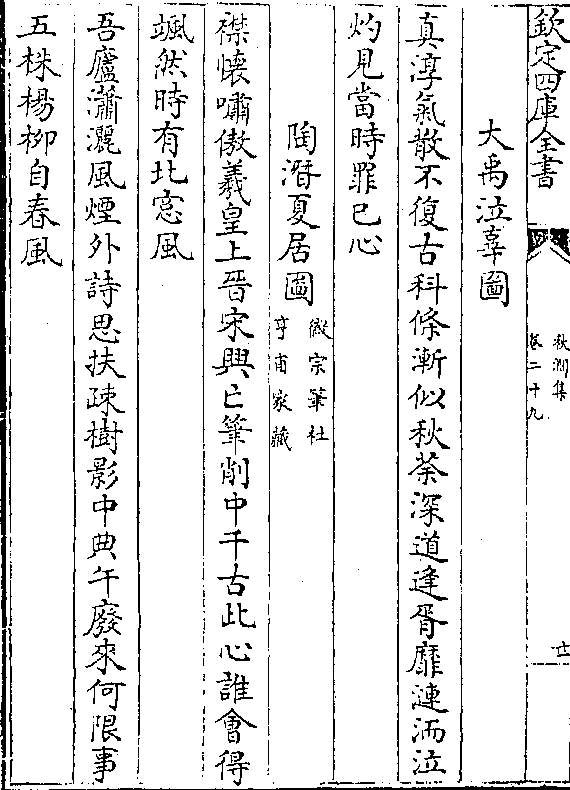 欽定四庫全書
秋澗集
卷二十九
廿
大禹泣辜圖
真淳氣散不復古科條漸似秋荼深道逢胥靡漣洏泣
灼見當時罪已心
陶潛夏居圖
徽宗筆杜
亨甫家藏
襟懷嘯傲羲皇上晉宋興亡筆削中千古此心誰會得
颯然時有北窓風
吾廬瀟灑風煙外詩思扶疎樹影中典午廢來何限事
五株楊柳自春風